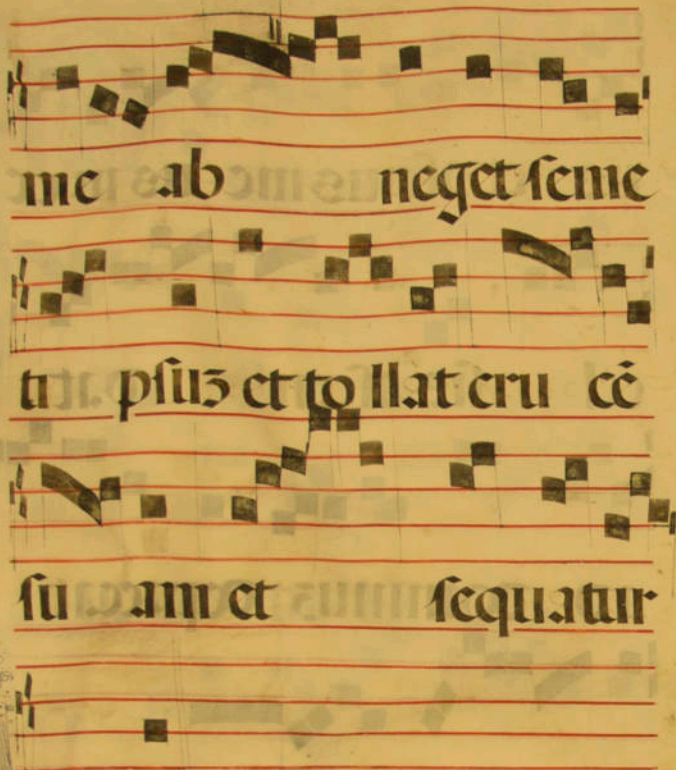 me ab neget seme
ti psuz et to llat cru cē
su am et sequatur